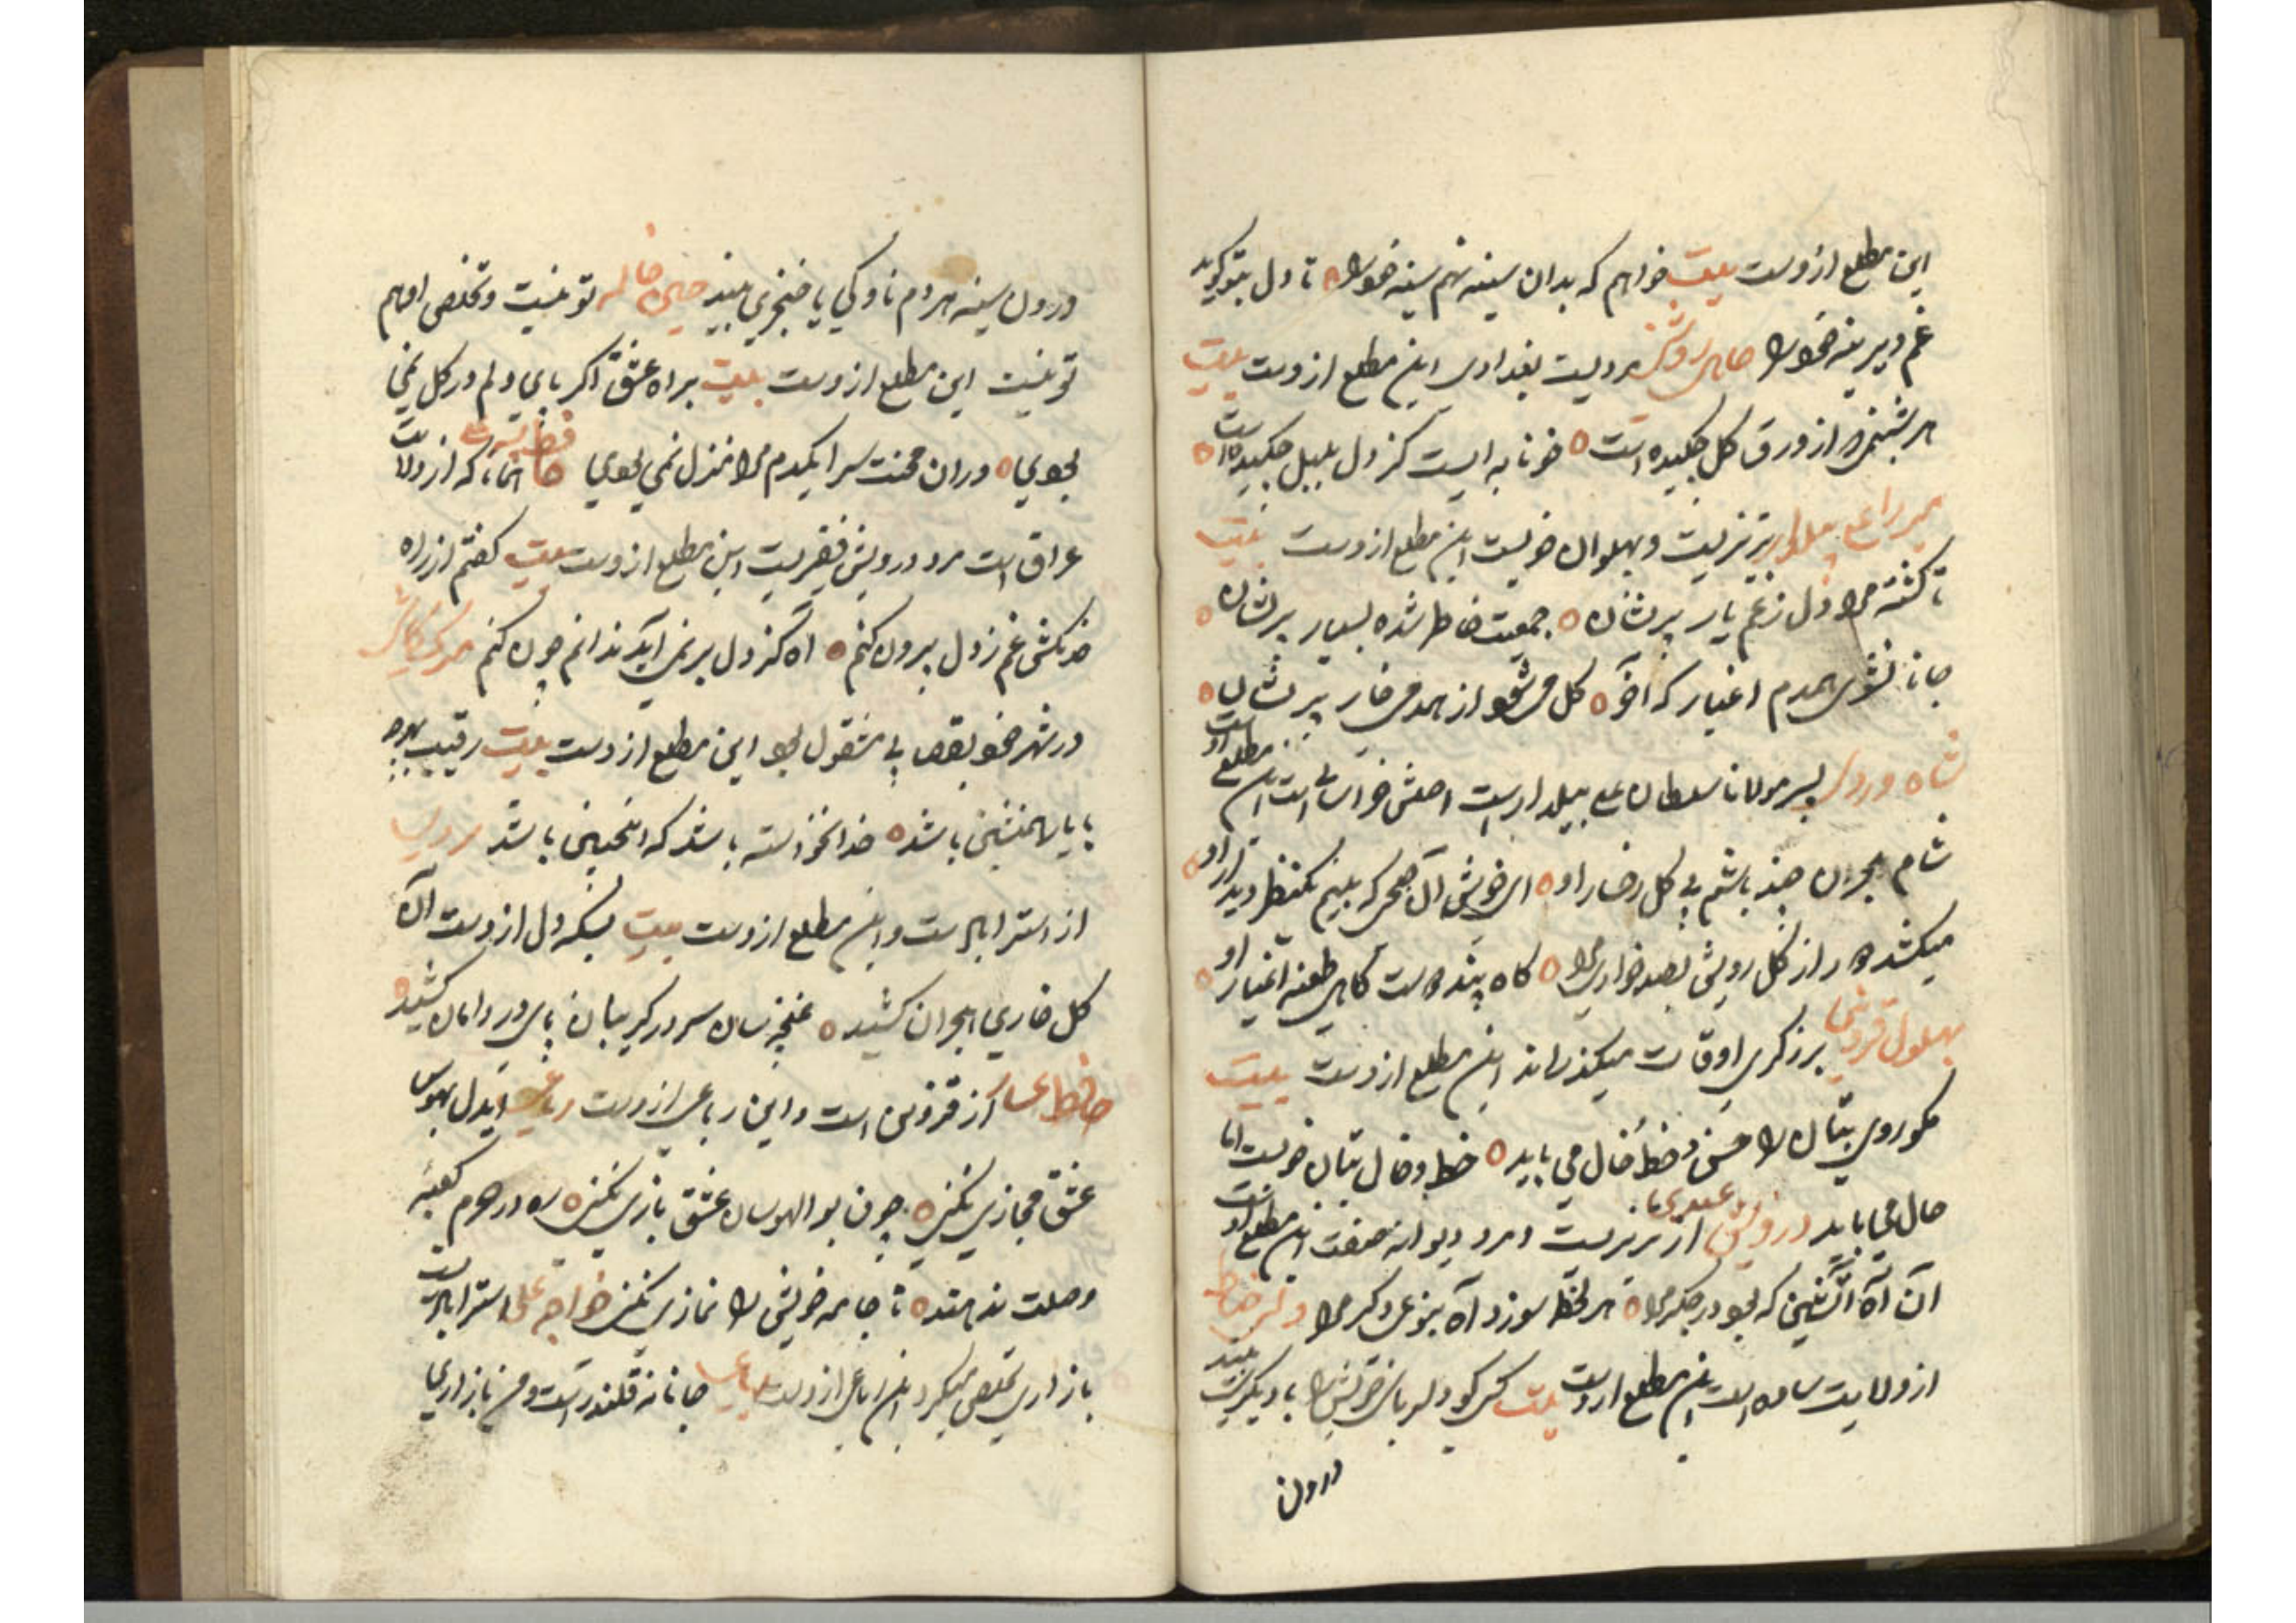 این مطلع ازوست بیت خواهم که بدان سینه نهم سینه خود را تا دل بتو گوید
غم دیرینه خود را مردیست بغدادی این مطلع ازوست بیت
هر شبنمی که از ورق گل چکیده است خونابه ایست کز دل بلبل چکیده است
تبریزیست و پهلوان خوبست این مطلع ازوست بیت
تا گشته مرا دل ز غم یار پریشان جمعیت خاطر شده بسیار پریشان
جانا نشوی همدم اغیار که آخر گل می شود از همدمی خار پریشان
شاه وردی پسر مولانا سلطان علی بیلدار است اصلش خراسانی است این مطلع ازوست
شام هجران چند باشم بی گل رخسار او ای خوش آن صبحی که بینم یکنظر دیدار او
میکشد هر دم از گل رویش بصد خواری مرا گاه پند دوست گاهی طعنه اغیار او
بهلول قزوینی برزگری اوقات میگذراند این مطلع ازوست بیت
نکوروی بتان را حسن و خط و خال می باید خط و خال بتان خوبست اما
حال می باید درویش عبدی از تبریزست و مرد دیوانه صفت این مطلع ازوست
آن آه آتشین که بود در جگر مرا هر لحظه سوزد آه بنوعی دگر مرا
از ولایت ساوه است این مطلع ازوست بیت کسی کو دلربای خویش را با دیگری بیند
درون
درون سینه هر دم ناوکی یا خنجری بیند تونیست و تخلص او هم
تونیست این مطلع ازوست بیت براه عشق اگر پای دلم در گل نمی
بودی دران محنت سرا یکدم مرا منزل نمی بودی که از ولایت
عراق است مرد درویش فقیریست این مطلع ازوست بیت گفتم از راه
غم ز دل بیرون کنم آه کز دل بر نمی آید ندانم چون کنم
در شهر خود بقصابی مشغول بود این مطلع ازوست بیت رقیب
با یار همنشین باشد خدا نخواسته باشد که اینچنین باشد
از استراباد است و این مطلع ازوست بیت بسکه دل از دست آن
گل خاری هجران کشید غنچه سان سر در گریبان پای در دامان کشید
حافظ از قزوین است و این رباعی ازوست رباعی ایدل بهوس
عشق مجازی نکنی چون بوالهوسان عشق بازی نکنی ره در حرم کعبه
وصلت ندهند تا جامه خویش را نمازی نکنی خواجه علی استرابادیست
بازاری تخلص میکرد این رباعی ازوست رباعی جانانه قلندرست و من بازاری